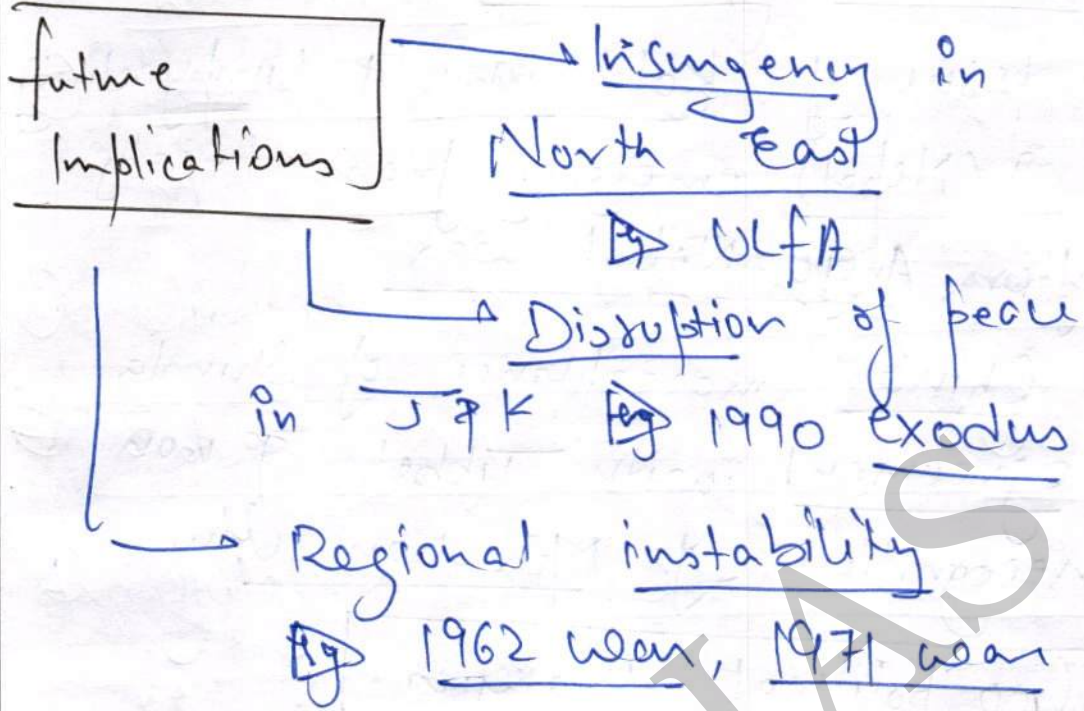 future
Implications
Insurgency in
North East
eg ULFA
Disruption of peace
in J & K eg 1990 exodus
Regional instability
eg 1962 war, 1971 war
IAS